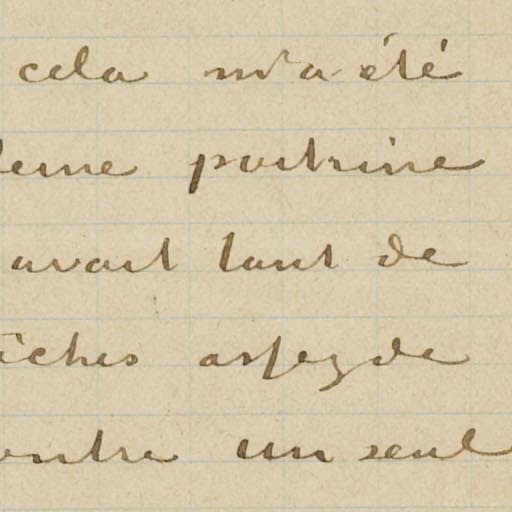 cela m'a été
leine poitrine
avait tant de
iches assez de
ontre un seul